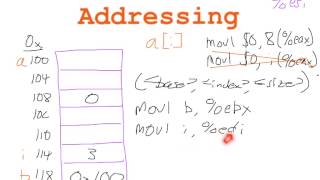 Addressing
%esi
0x
a[i]
movl $0, 8(%eax)
movl $0, i(%eax)
a 100
104
108 0
10c
(<base>, <index>, <size>)
movl b, %ebx
110
movl i, %edi
i 114 3
b 118 0x100